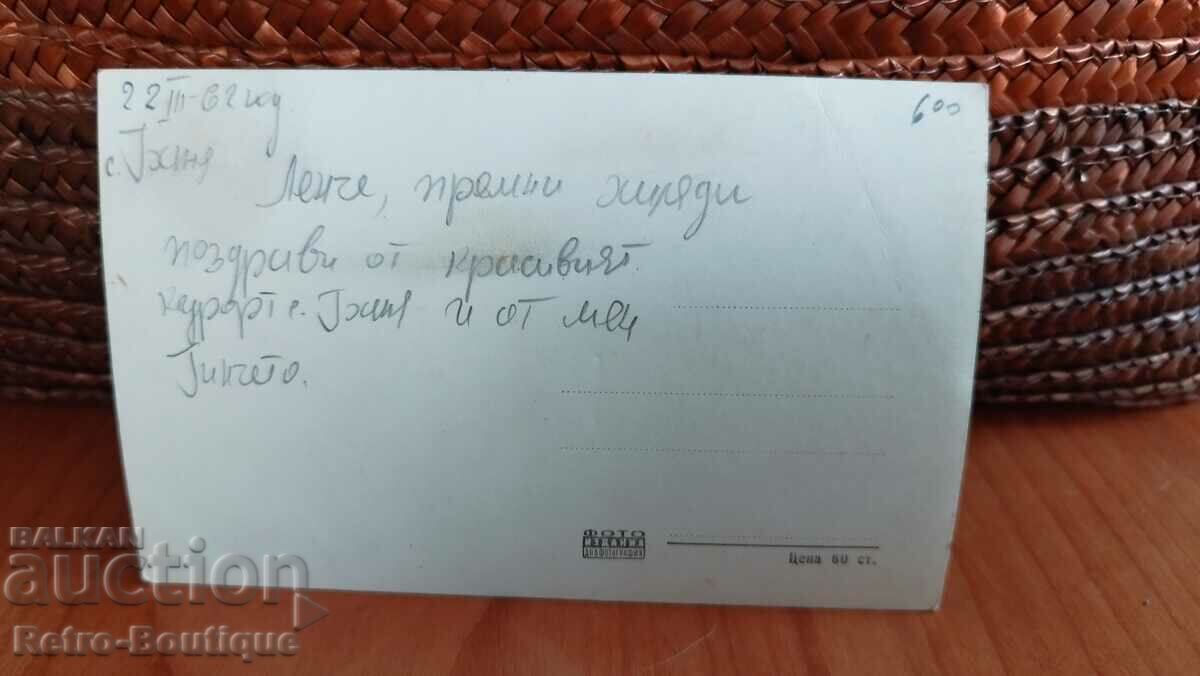 22 III-62 год
600
с. Баня
Ленче, приеми хиляди
поздрави от красивият
курорт с. Баня и от мен
Гинчето.
ФОТО
ИЗДАНИЯ
Цена 60 ст.
BALKAN
auction
Retro-Boutique